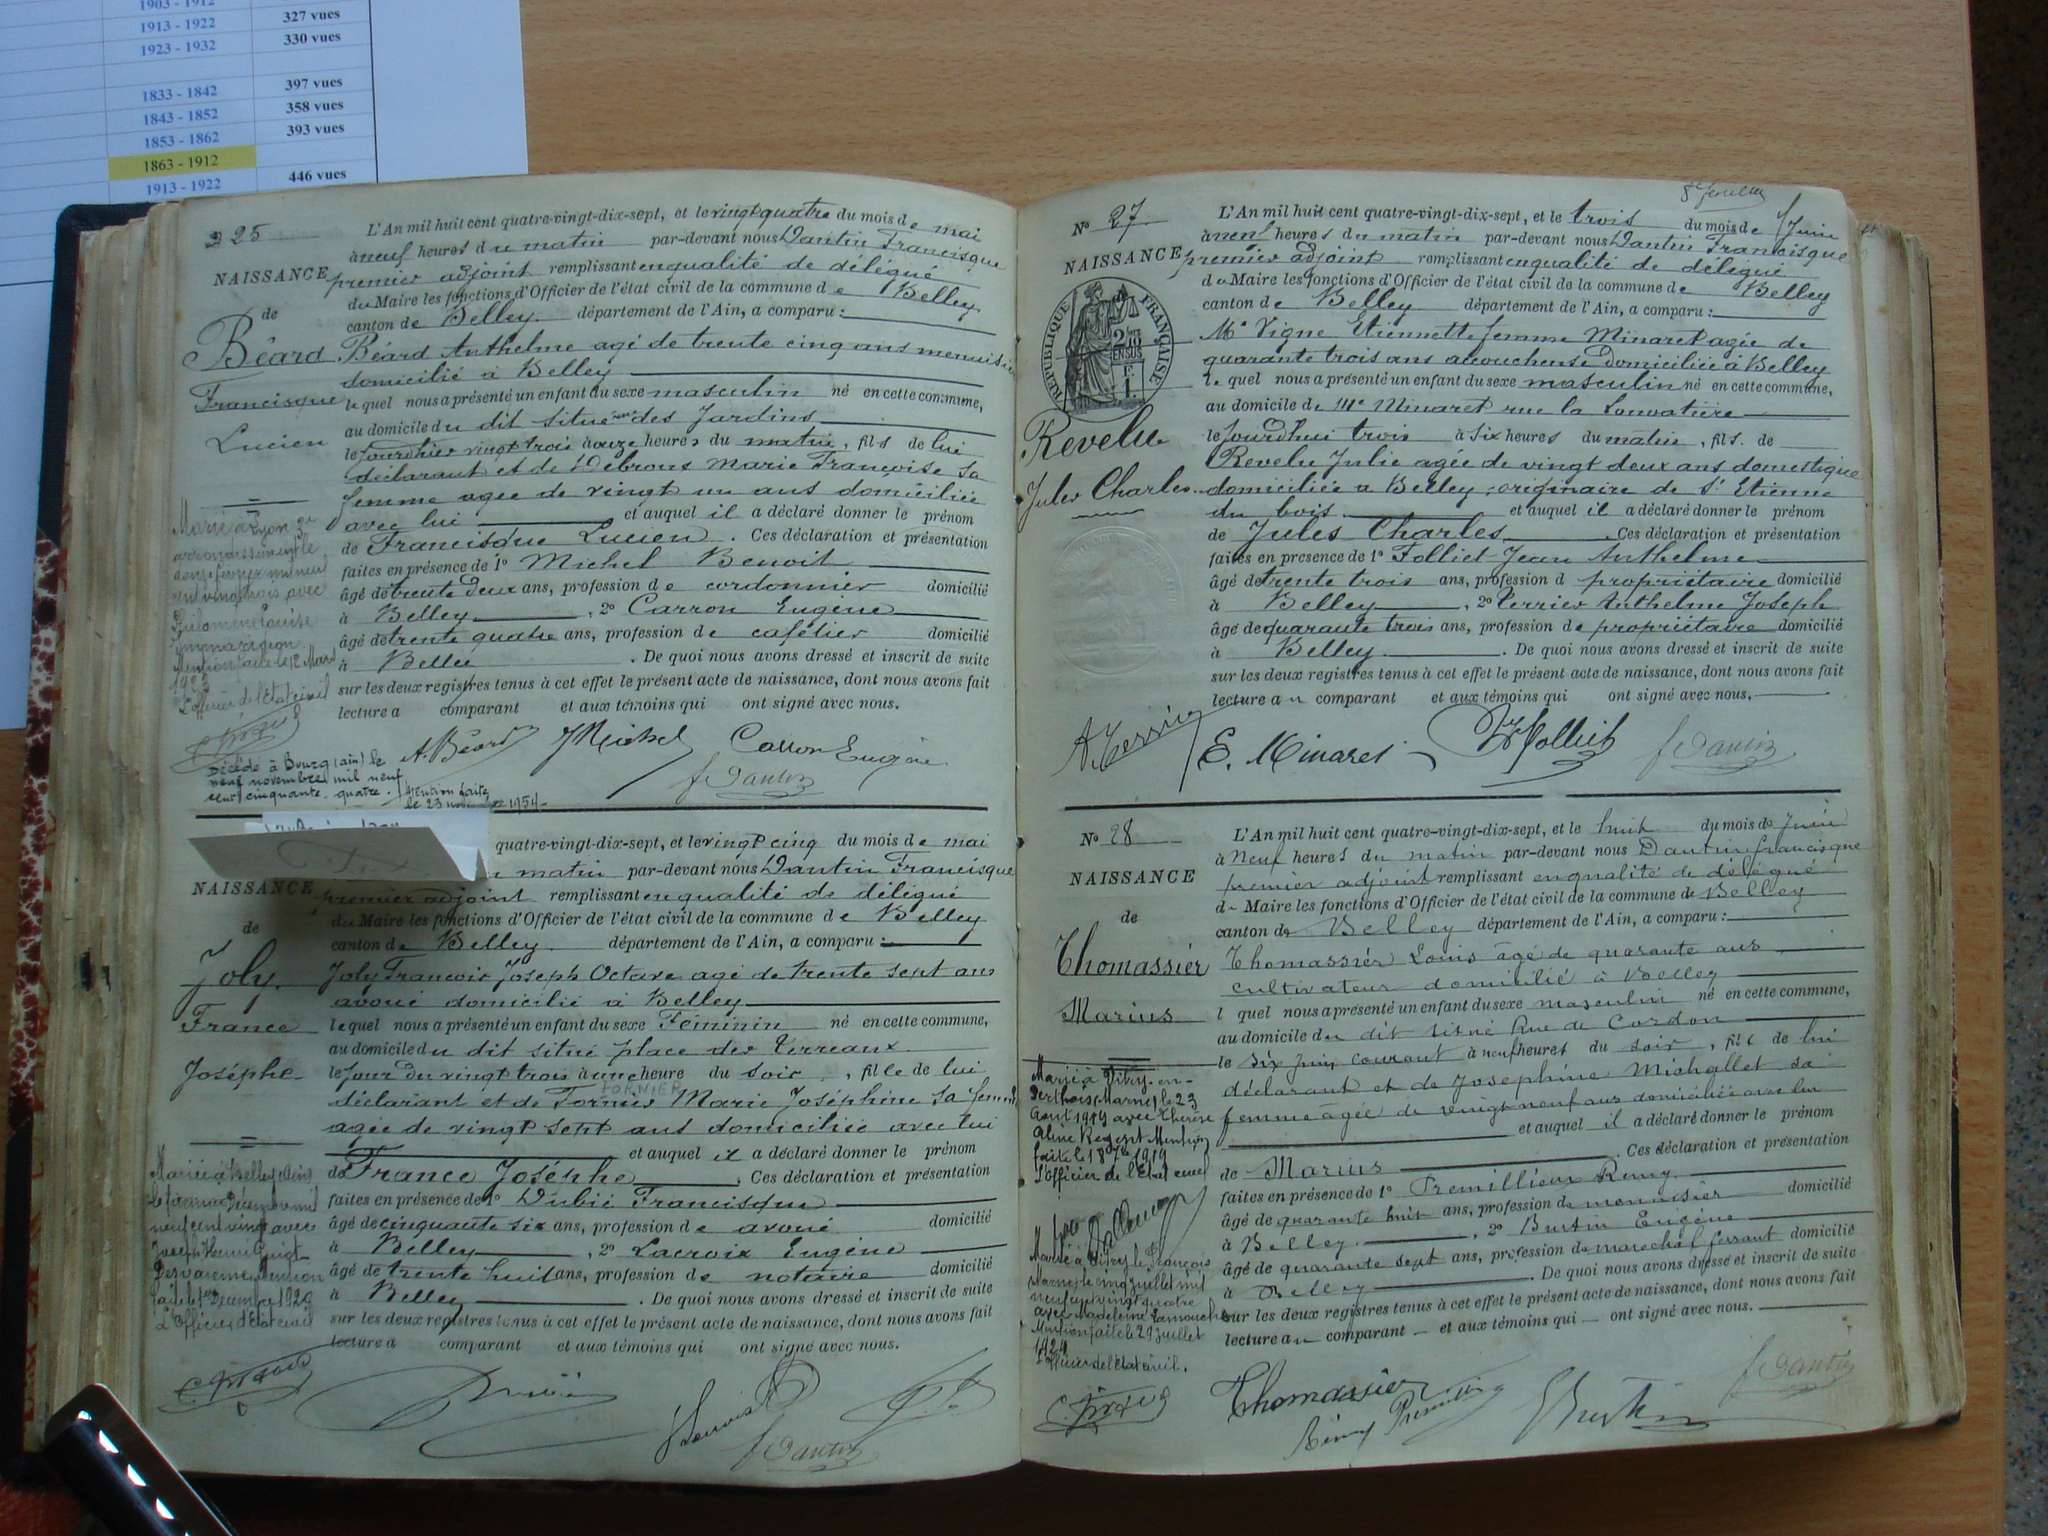 1903 - 1912
1913 - 1922 327 vues
1923 - 1932 330 vues
1833 - 1842 397 vues
1843 - 1852 358 vues
1853 - 1862 393 vues
1863 - 1912
1913 - 1922 446 vues
25
NAISSANCE
de
Béard
Francisque
Lucien
L'An mil huit cent quatre-vingt-dix-sept, et le vingt quatre du mois de mai
à neuf heures du matin par-devant nous Dantin Francisque
premier adjoint remplissant en qualité de délégué
du Maire les fonctions d'Officier de l'état civil de la commune de Belley
canton de Belley département de l'Ain, a comparu :
Béard Anthelme agé de trente cinq ans menuisier
domicilié à Belley
lequel nous a présenté un enfant du sexe masculin né en cette commune,
au domicile du dit situé rue des Jardins
le jourdhier vingt trois à onze heures du matin, fils de lui
déclarant et de Débrous Marie Françoise sa
femme agée de vingt un ans domiciliée
avec lui et auquel il a déclaré donner le prénom
de Francisque Lucien. Ces déclaration et présentation
faites en présence de 1º Michel Benoit
âgé de trente deux ans, profession de cordonnier domicilié
à Belley, 2º Carron Eugène
âgé de trente quatre ans, profession de cafetier domicilié
à Belley. De quoi nous avons dressé et inscrit de suite
sur les deux registres tenus à cet effet le présent acte de naissance, dont nous avons fait
lecture a comparant et aux témoins qui ont signé avec nous.
Marié à Lyon 2e
arrondissement le
douze fevrier mil neuf
cent vingt trois avec
Mention faite le 12 Mars
L'officier de l'Etat civil
A. Béard J Michel Carron Eugène
f Dantin
Décédé à Bourg (ain) le
neuf novembre mil neuf
cent cinquante-quatre. Mention faite
le 23 novembre 1954-
NAISSANCE
de
Joly
France
Joséphe
quatre-vingt-dix-sept, et le vingt cinq du mois de mai
matin par-devant nous Dantin Francisque
premier adjoint remplissant en qualité de délégué
du Maire les fonctions d'Officier de l'état civil de la commune de Belley
canton de Belley département de l'Ain, a comparu :
Joly François Joseph Octave agé de trente sept ans
avoué domicilié à Belley
lequel nous a présenté un enfant du sexe Féminin né en cette commune,
au domicile du dit situé place des Terreaux
le jour du vingt trois à une heure du soir, fille de lui
FORNIER
déclarant et de Fornier Marie Joséphine sa femme
agée de vingt sept ans domiciliée avec lui
et auquel il a déclaré donner le prénom
de France Joséphe. Ces déclaration et présentation
faites en présence de 1º Dubié Francisque
âgé de cinquante six ans, profession de avoué domicilié
à Belley, 2º Lacroix Eugène
âgé de trente huit ans, profession de notaire domicilié
à Belley. De quoi nous avons dressé et inscrit de suite
sur les deux registres tenus à cet effet le présent acte de naissance, dont nous avons fait
lecture a comparant et aux témoins qui ont signé avec nous.
Mariée à Belley (Ain)
le premier Décembre mil
neuf cent vingt avec
Joseph Henri
Mention
faite le 1er Décembre 1920
L'Officier d'Etat civil
f Dantin
Nº 27
NAISSANCE
RÉPUBLIQUE FRANÇAISE
Revelu
Jules Charles
L'An mil huit cent quatre-vingt-dix-sept, et le trois du mois de Juin
à neuf heures du matin par-devant nous Dantin Francisque
premier adjoint remplissant en qualité de délégué
du Maire les fonctions d'Officier de l'état civil de la commune de Belley
canton de Belley département de l'Ain, a comparu :
Me Vigne Etiennette femme Minaret agée de
quarante trois ans accoucheuse domiciliée à Belley
lequel nous a présenté un enfant du sexe masculin né en cette commune,
au domicile de Me Minaret rue la Louvatière
le jourdhui trois à six heures du matin, fils de
Revelu Julie agée de vingt deux ans domestique
domiciliée à Belley, originaire de St Etienne
du bois et auquel il a déclaré donner le prénom
de Jules Charles. Ces déclaration et présentation
faites en présence de 1º Folliet Jean Anthelme
âgé de trente trois ans, profession de propriétaire domicilié
à Belley, 2º Terrier Anthelme Joseph
âgé de quarante trois ans, profession de propriétaire domicilié
à Belley. De quoi nous avons dressé et inscrit de suite
sur les deux registres tenus à cet effet le présent acte de naissance, dont nous avons fait
lecture au comparant et aux témoins qui ont signé avec nous.
A. Terrier E. Minaret Folliet f Dantin
Nº 28
NAISSANCE
de
Thomassier
Marius
L'An mil huit cent quatre-vingt-dix-sept, et le huit du mois de Juin
à Neuf heures du matin par-devant nous Dantin francisque
premier adjoint remplissant en qualité de délégué
du Maire les fonctions d'Officier de l'état civil de la commune de Belley
canton de Belley département de l'Ain, a comparu :
Thomassier Louis âgé de quarante ans
cultivateur domicilié à Belley
lequel nous a présenté un enfant du sexe masculin né en cette commune,
au domicile du dit situé Rue de Cordon
le six Juin courant à neuf heures du soir, fils de lui
déclarant et de Josephine Michallet sa
femme âgée de vingt neuf ans domiciliée avec lui
et auquel il a déclaré donner le prénom
de Marius. Ces déclaration et présentation
faites en présence de 1º Premillieu Remy
âgé de quarante huit ans, profession de menuisier domicilié
à Belley, 2º Burtin Eugène
âgé de quarante sept ans, profession de marechal ferrant domicilié
à Belley. De quoi nous avons dressé et inscrit de suite
sur les deux registres tenus à cet effet le présent acte de naissance, dont nous avons fait
lecture au comparant et aux témoins qui ont signé avec nous.
Marié à Vitry-en-
Perthois (Marne) le 23
Août 1919 avec Thérèse
Aline Mention
faite le 18 1919
L'Officier de l'Etat civil
Marié à Vitry le François
Marne le cinq Juillet mil
neuf cent vingt quatre
avec Madeleine
Mention faite le 29 Juillet
1924
L'officier de l'Etat civil.
Thomassier
Rémy Premillieu Burtin f Dantin